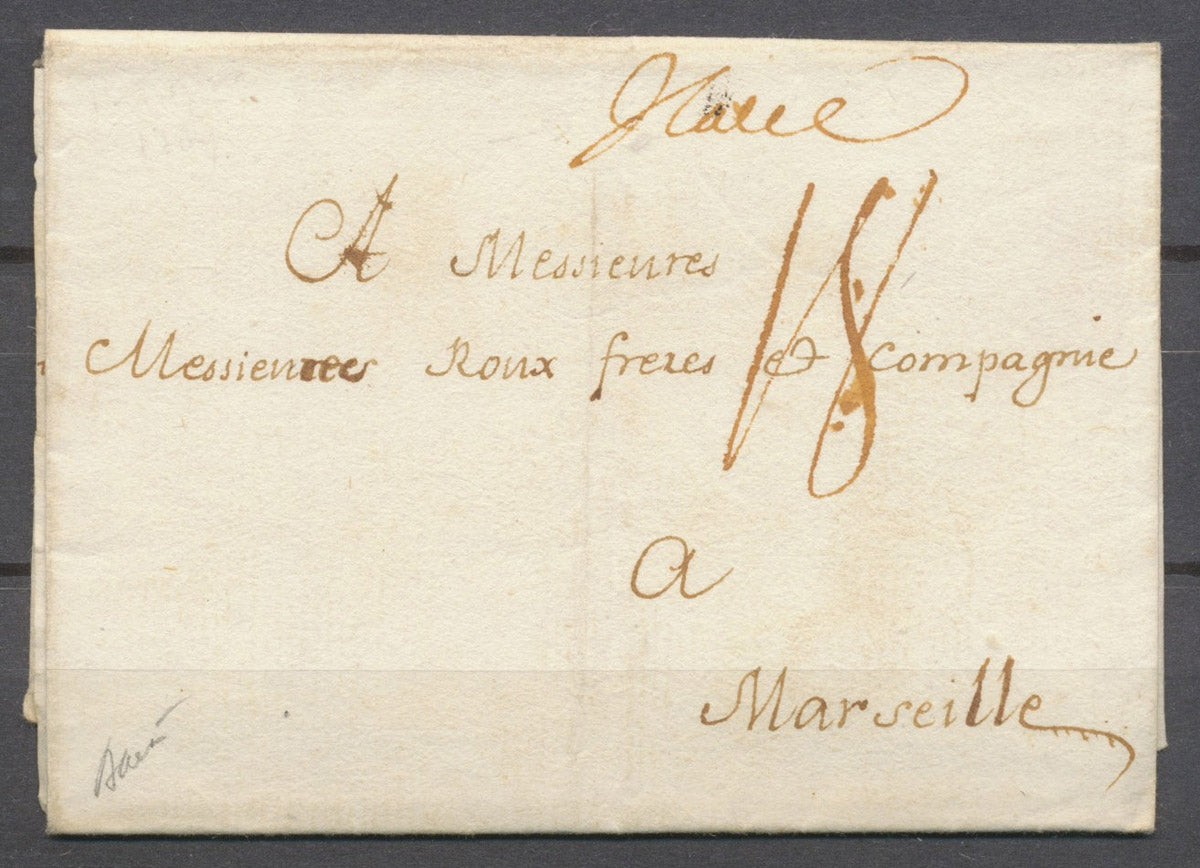 A Messieures
Messieures Roux freres et Compagnie
18
a
Marseille